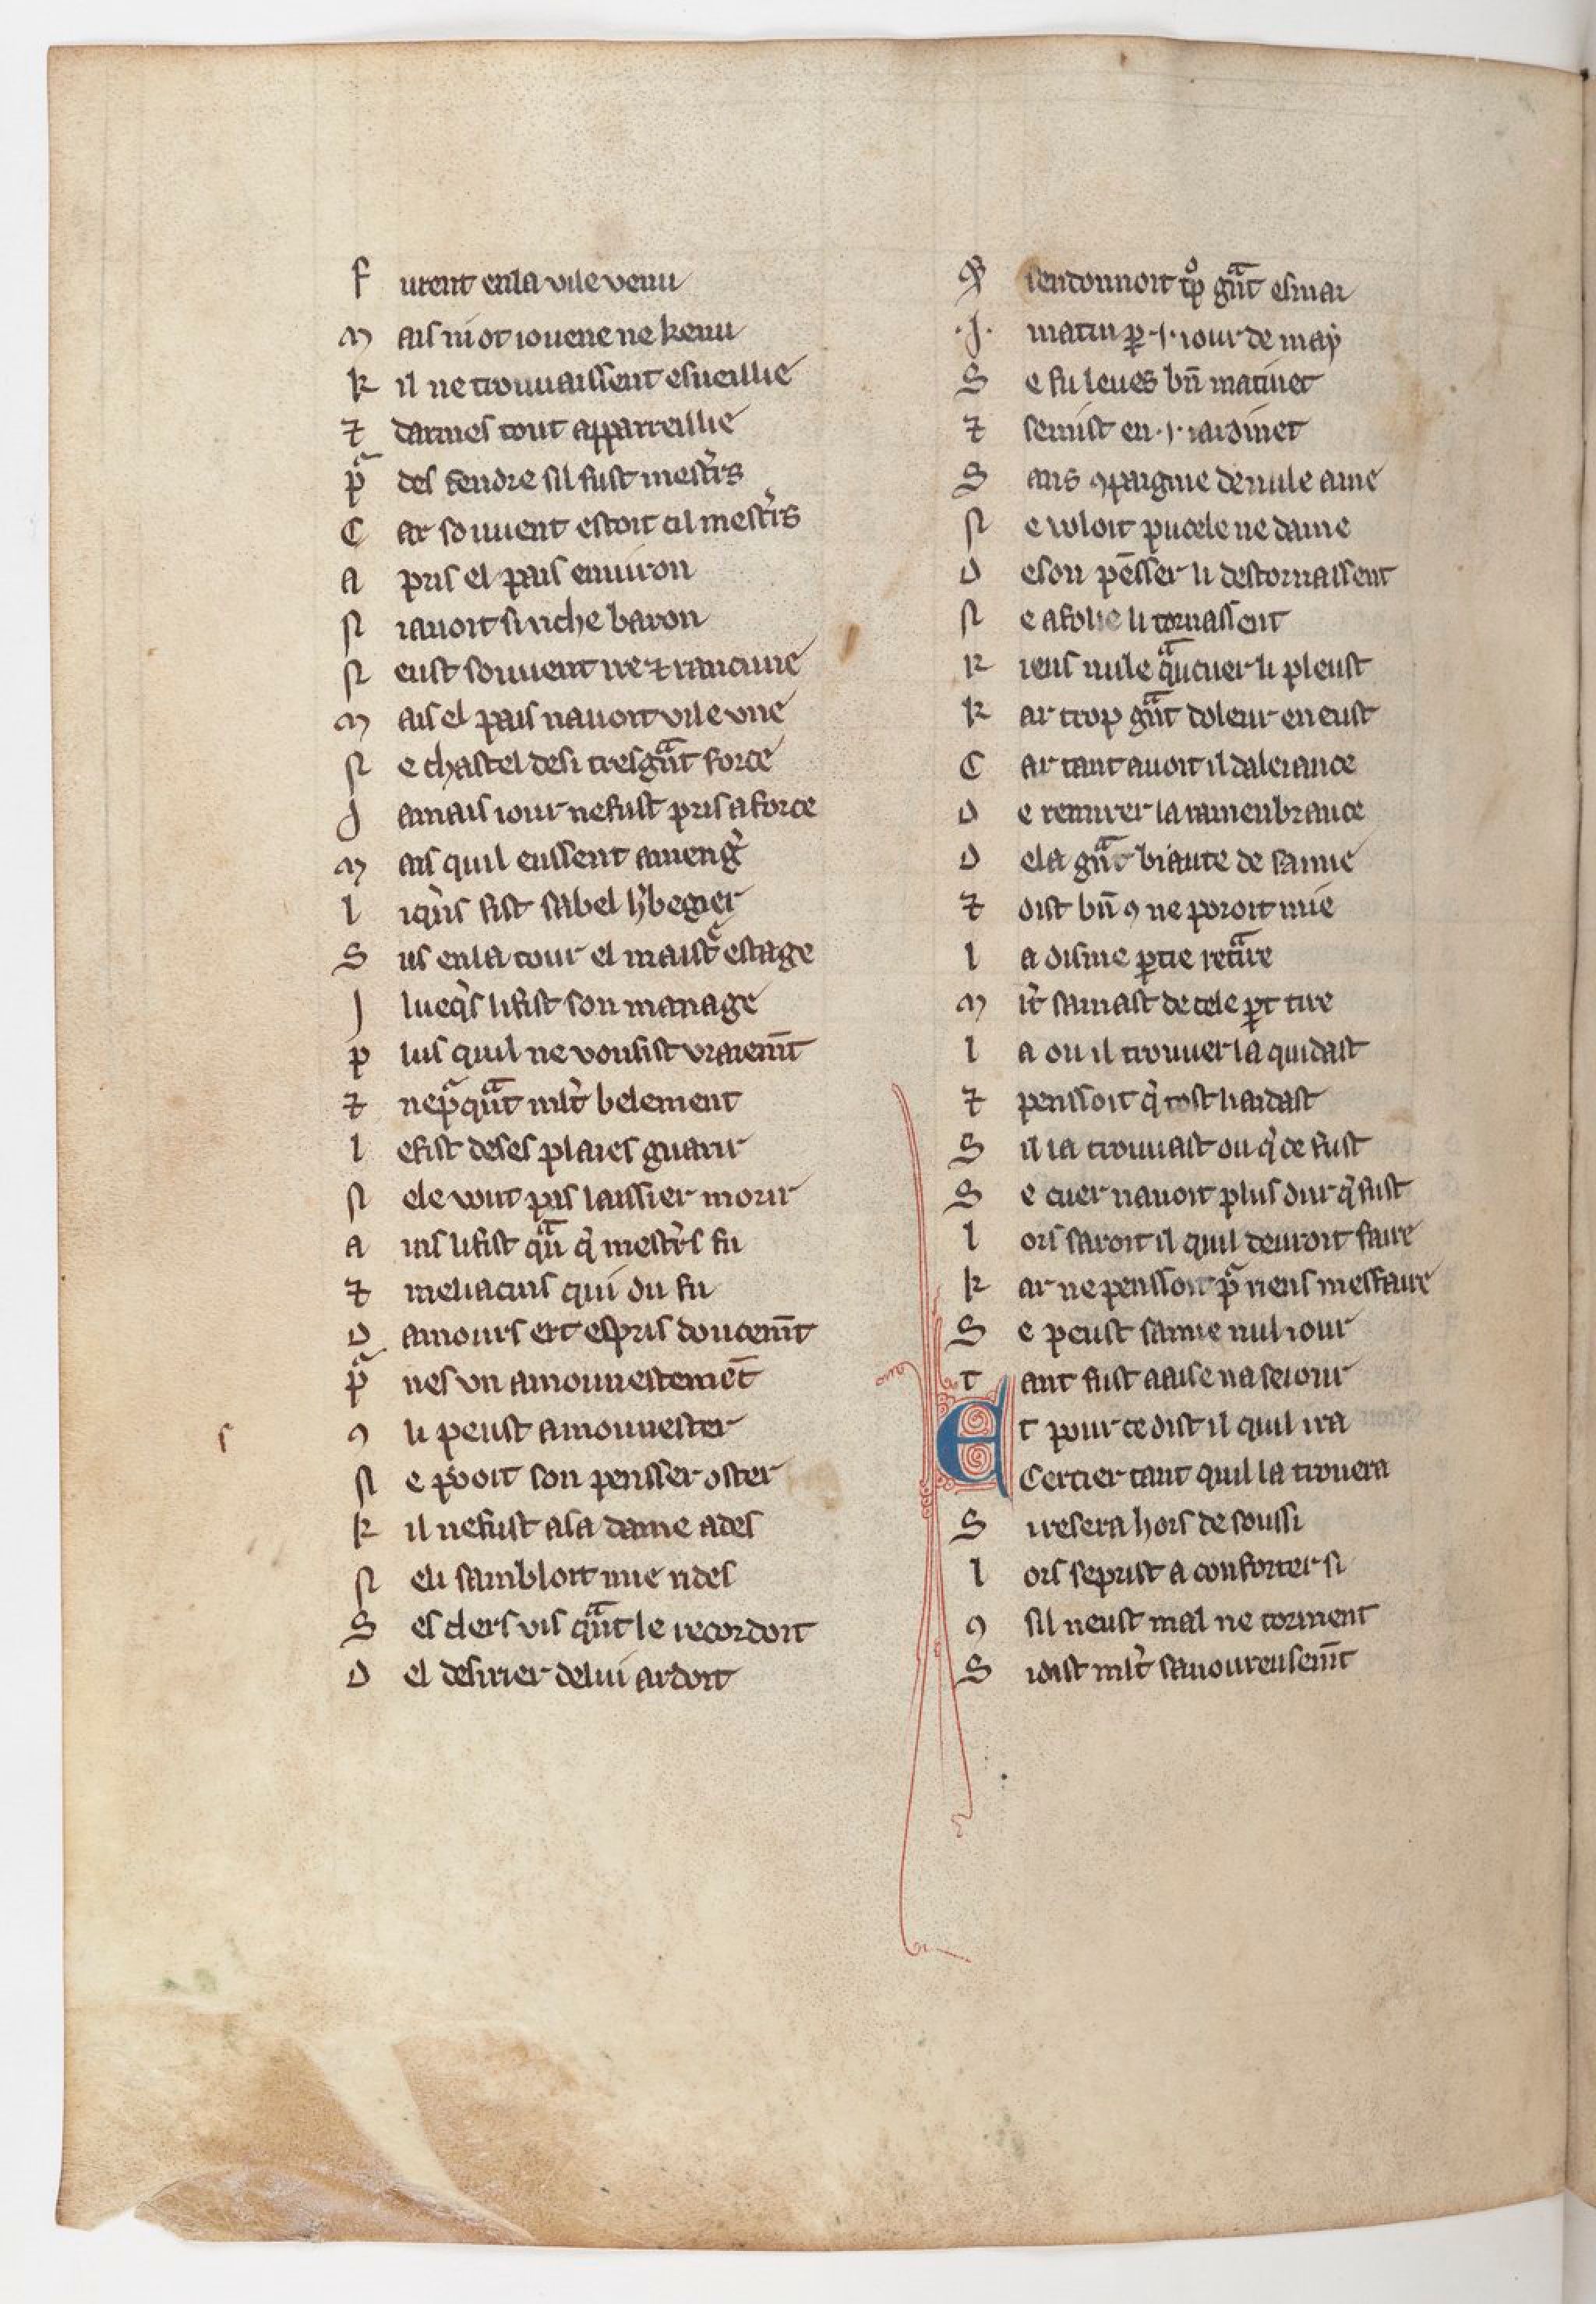 F urent en la vile venu
M ais ni ot iouene ne kenu
K il ne trouuaissent esueillie
⁊ darmes tout apparreillie
pᵃ des fendre sil fust mestꝰs
C ar souuent estoit cil mestꝰs
A pris el pais enuiron
N i auoit si riche baron
N eust souuent ire ⁊ rancune
M ais el pais nauoit vile vne
N e chastel de si tres gᵃnt force
J amais iour ne fust pris a force
M ais quil eussent a mengꝰ
L iqͥns fist sabel hꝰbegier
S us en la tour el maistᵉ estage
J lueqͥs li fist son manage
P lus quil ne vousist vraiem̄t
⁊ nepᵃqᵃnt mlꝰt belement
L e fist de ses plaies guarir
N ele vout pas laissier morir
A ins li fist qᵃn qͥ mestꝰs fu
⁊ meliacins qui du fu
D amours ert espris doucem̄t
pᵃ nes vn amounestemēt
ꝯ li peust amounester
N e pooit son pensser oster
K il ne fust a sa dame ades
N e li sambloit mie ades
S es clers vis qᵃnt le recordoit
D el desirier de lui ardoit
Q i en donnoit tͦp gᵃnt esmai
.J. matin ꝑ .i. iour de may
S e fu leues bn̄ matinet
⁊ sen ist en .i. iardinet
S ans ꝯpaignie de nule ame
N e voloit pucele ne dame
D e son pēsser li destornassent
N e a folie li tornassent
R iens nule qᵃ cuer li pleust
K ar trop gᵃnt doleur en eust
C ar tant auoit il daleiance
D e remirer la ramenbrance
D e la gᵃnt biaute de samie
⁊ dist bn̄ ꝯ ne poroit mie
L a disme ꝑtie retᵃire
M lꝰt samast de cele ꝑt tire
L a ou il trouuer la quidast
⁊ penssoit qͥ tost li aidast
S il la trouuast ou qͥ ce fust
S e cuer nauoit plus dur qͥ fust
L ors saroit il quil deuroit faire
K ar ne penssoit pᵃ riens messaire
S e peust samie nul iour
T ant fust a aise na seiour
E t pour ce dist il quil ira
Cercier tant quil la trouera
S i resera hors de soussi
L ors se prist a conforter si
ꝯ sil neust mal ne torment
S i dist mlꝰt sauoureusem̄t